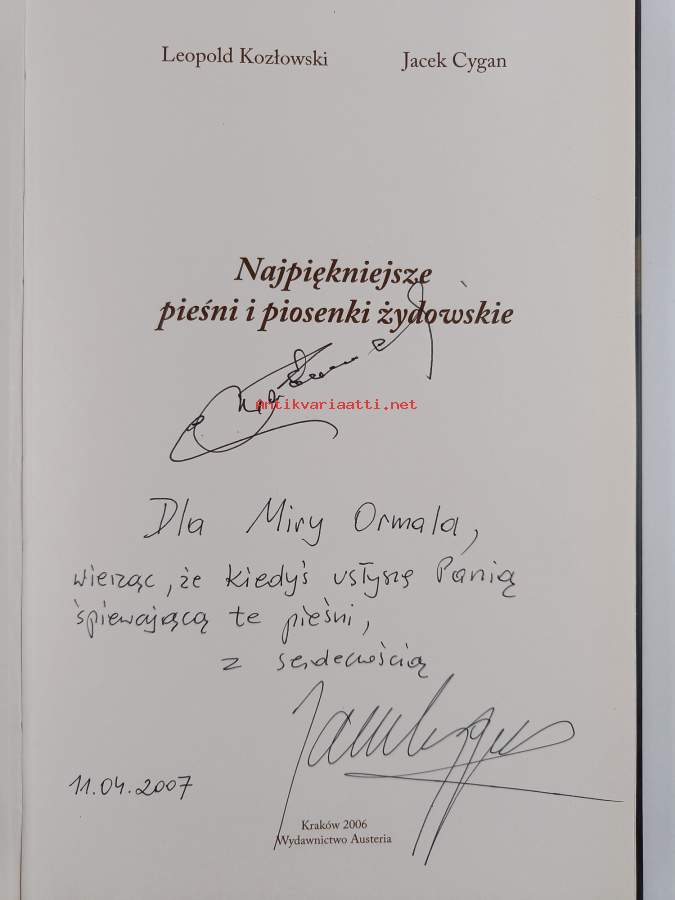 Leopold Kozłowski Jacek Cygan
Najpiękniejsze
pieśni i piosenki żydowskie
Antikvariaatti.net
Dla Miry Ormala,
wierząc, że kiedyś usłyszę Panią
śpiewającą te pieśni,
z serdecznością
11.04.2007
Kraków 2006
Wydawnictwo Austeria